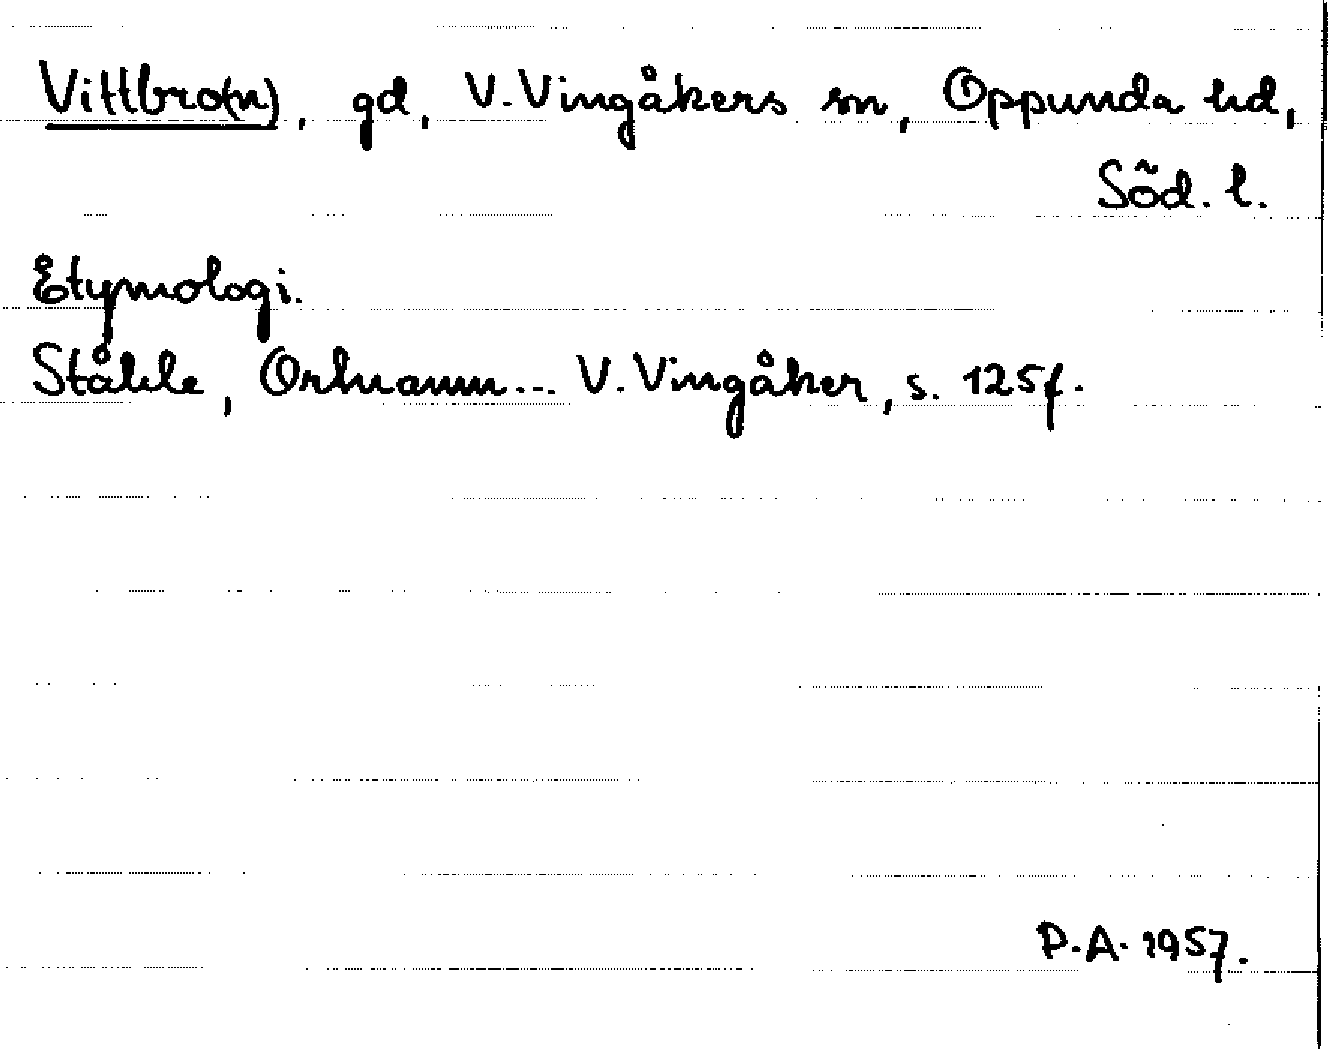 Vittbro(n), gd, V. Vingåkers sn, Oppunda hd,
Söd. l.
Etymologi.
Ståhle, Ortnamn... V. Vingåker, s. 125f.
P.A. 1957.